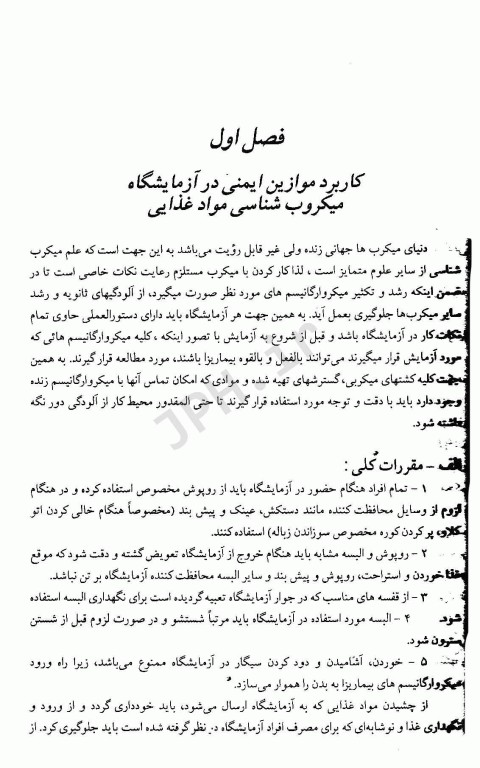 فصل اول
کاربرد موازین ایمنی در آزمایشگاه
میکروب شناسی مواد غذایی
دنیای میکرب ها جهانی زنده ولی غیر قابل رؤیت می‌باشد به این جهت است که علم میکرب
شناسی از سایر علوم متمایز است ، لذا کار کردن با میکرب مستلزم رعایت نکات خاصی است تا در
ضمن اینکه رشد و تکثیر میکروارگانیسم های مورد نظر صورت میگیرد، از آلودگیهای ثانویه و رشد
سایر میکرب‌ها جلوگیری بعمل آید. به همین جهت هر آزمایشگاه باید دارای دستورالعملی حاوی تمام
نکات کار در آزمایشگاه باشد و قبل از شروع به آزمایش با تصور اینکه ، کلیه میکروارگانیسم هائی که
مورد آزمایش قرار میگیرند می‌توانند بالفعل و بالقوه بیماریزا باشند، مورد مطالعه قرار گیرند. به همین
جهت کلیه کشتهای میکربی، گسترشهای تهیه شده و موادی که امکان تماس آنها با میکروارگانیسم زنده
وجود دارد باید با دقت و توجه مورد استفاده قرار گیرند تا حتی المقدور محیط کار از آلودگی دور نگه
داشته شود.
الف - مقررات کلی :
۱ - تمام افراد هنگام حضور در آزمایشگاه باید از روپوش مخصوص استفاده کرده و در هنگام
لزوم از وسایل محافظت کننده مانند دستکش، عینک و پیش بند (مخصوصاً هنگام خالی کردن اتو
کلاو، پر کردن کوره مخصوص سوزاندن زباله) استفاده کنند.
۲ - روپوش و البسه مشابه باید هنگام خروج از آزمایشگاه تعویض گشته و دقت شود که موقع
غذا خوردن و استراحت، روپوش و پیش بند و سایر البسه محافظت کننده آزمایشگاه بر تن نباشد.
۳ - از قفسه های مناسب که در جوار آزمایشگاه تعبیه گردیده است برای نگهداری البسه استفاده
شود.
۴ - البسه مورد استفاده در آزمایشگاه باید مرتباً شستشو و در صورت لزوم قبل از شستن
سترون شود.
۵ - خوردن، آشامیدن و دود کردن سیگار در آزمایشگاه ممنوع می‌باشد، زیرا راه ورود
میکروارگانیسم های بیماریزا به بدن را هموار می‌سازد.
از چشیدن مواد غذایی که به آزمایشگاه ارسال می‌شود، باید خودداری گردد و از ورود و
نگهداری غذا و نوشابه‌ای که برای مصرف افراد آزمایشگاه در نظر گرفته شده است باید جلوگیری کرد. از